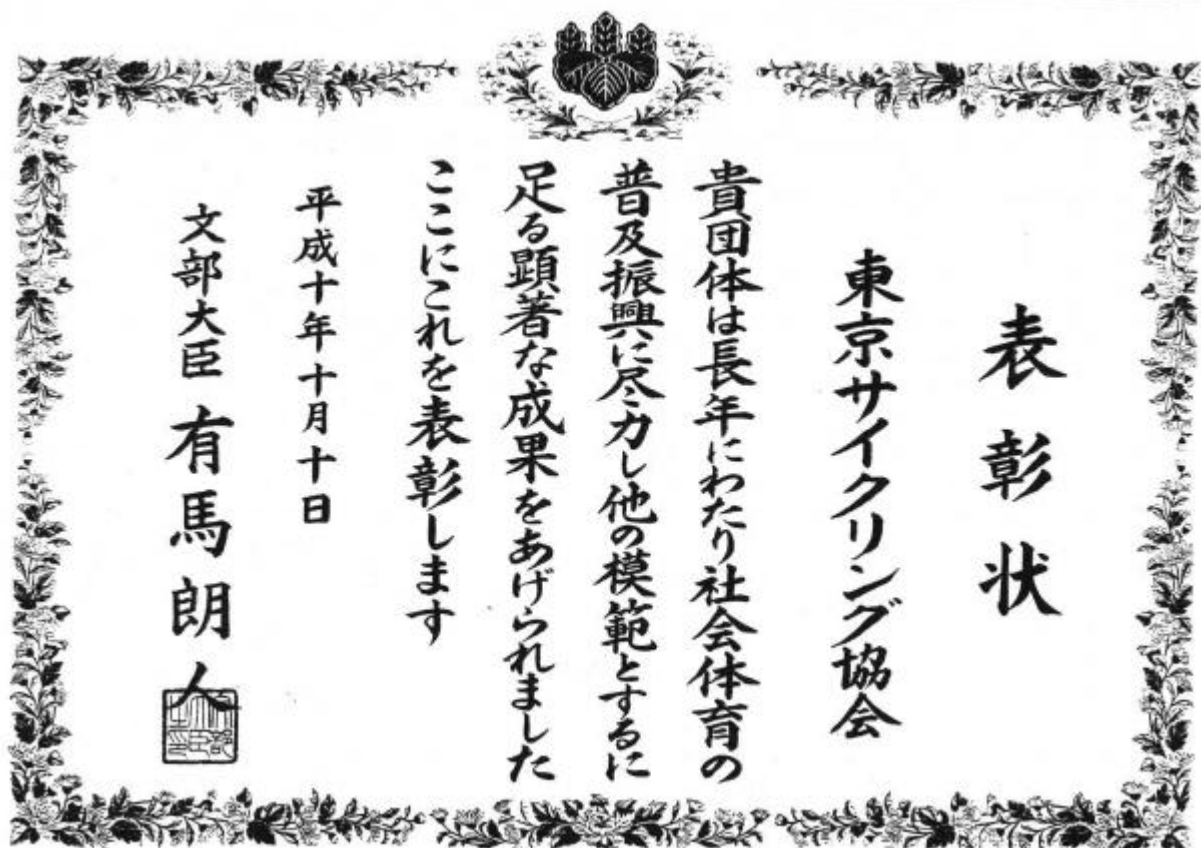 表彰状
東京サイクリング協会
貴団体は長年にわたり社会体育の
普及振興に尽力し他の模範とするに
足る顕著な成果をあげられました
ここにこれを表彰します
平成十年十月十日
文部大臣 有馬朗人